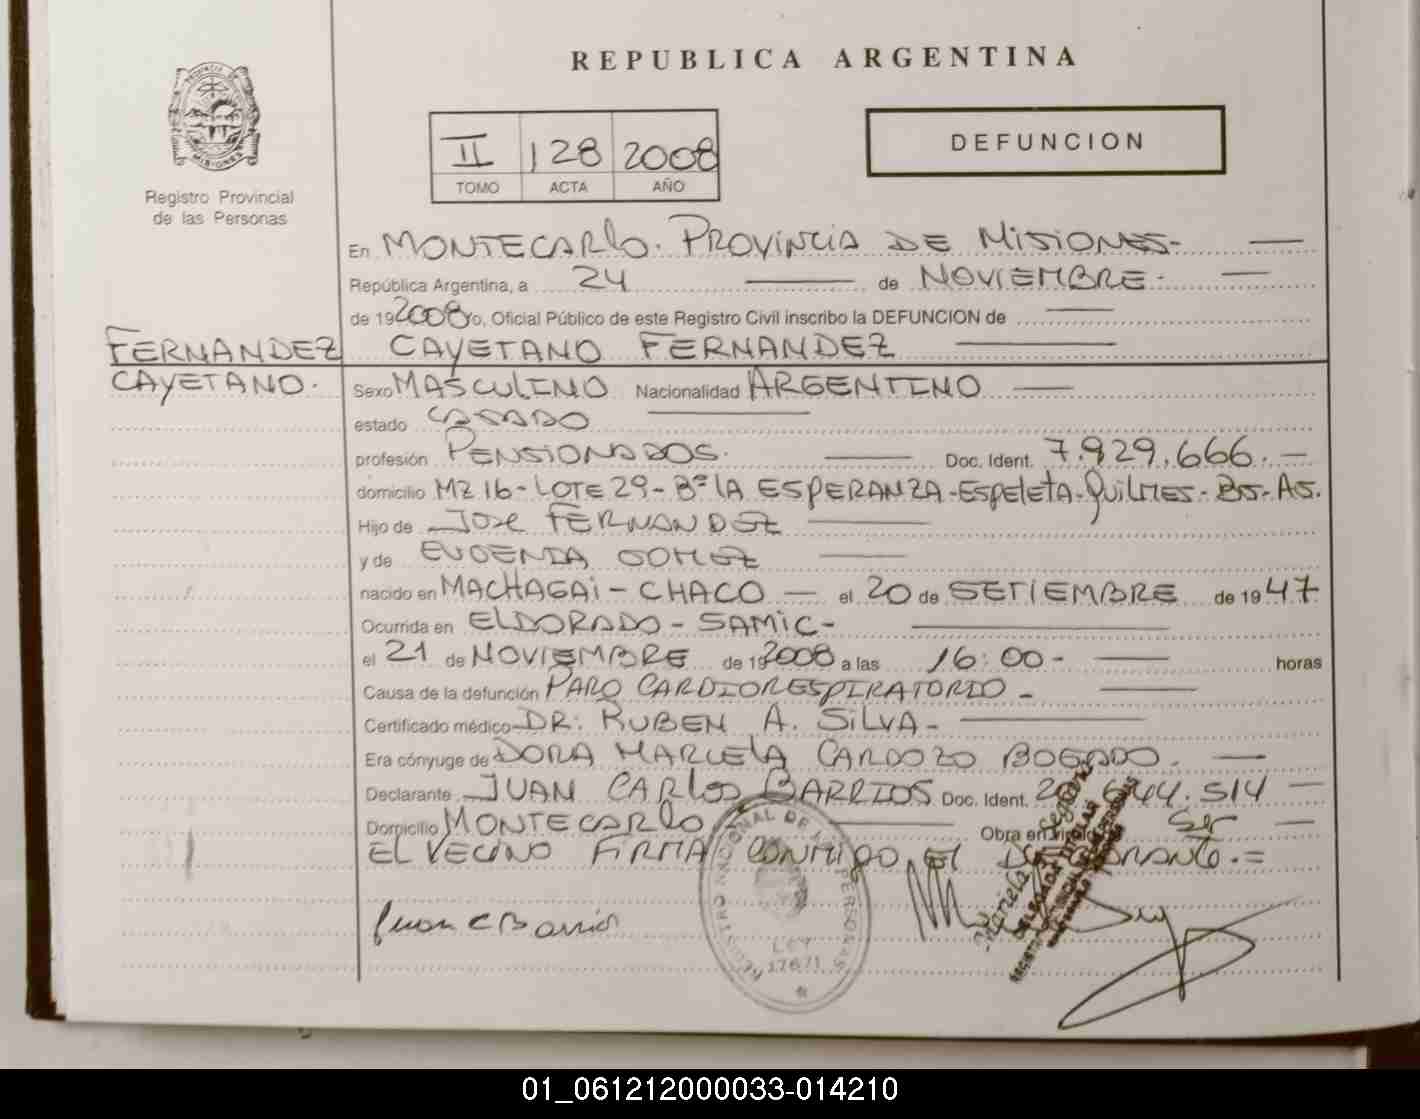 REPUBLICA ARGENTINA
PROVINCIA DE MISIONES
Registro Provincial
de las Personas
II 128 2008
TOMO ACTA AÑO
DEFUNCION
En MONTECARLO. PROVINCIA DE MISIONES-
República Argentina, a 24 de NOVIEMBRE.
de 192008 yo, Oficial Público de este Registro Civil inscribo la DEFUNCION de
FERNANDEZ CAYETANO FERNANDEZ
CAYETANO. Sexo MASCULINO Nacionalidad ARGENTINO
estado CASADO
profesión PENSIONADOS. Doc. Ident. 7.929.666.-
domicilio MZ 16-LOTE 29-Bº LA ESPERANZA-Espeleta-Quilmes-Bs-As.
Hijo de JOSE FERNANDEZ
y de EUGENIA GOMEZ
nacido en MACHAGAI-CHACO - el 20 de SETIEMBRE de 1947
Ocurrida en ELDORADO-SAMIC-
el 21 de NOVIEMBRE de 192008 a las 16:00- horas
Causa de la defunción PARO CARDIORESPIRATORIO-
Certificado médico DR: RUBEN A. SILVA-
Era cónyuge de DORA MARCELA CARDOZO BOGADO.
Declarante JUAN CARLOS BARRIOS Doc. Ident. 644.514
Domicilio MONTECARLO Obra en virtud Ser
EL VECINO FIRMA CONMIGO EL DECLARANTE.=
Juan C Barrios
REGISTRO NACIONAL DE LAS PERSONAS
LEY
17671
DELEGADA TITULAR
01_061212000033-014210